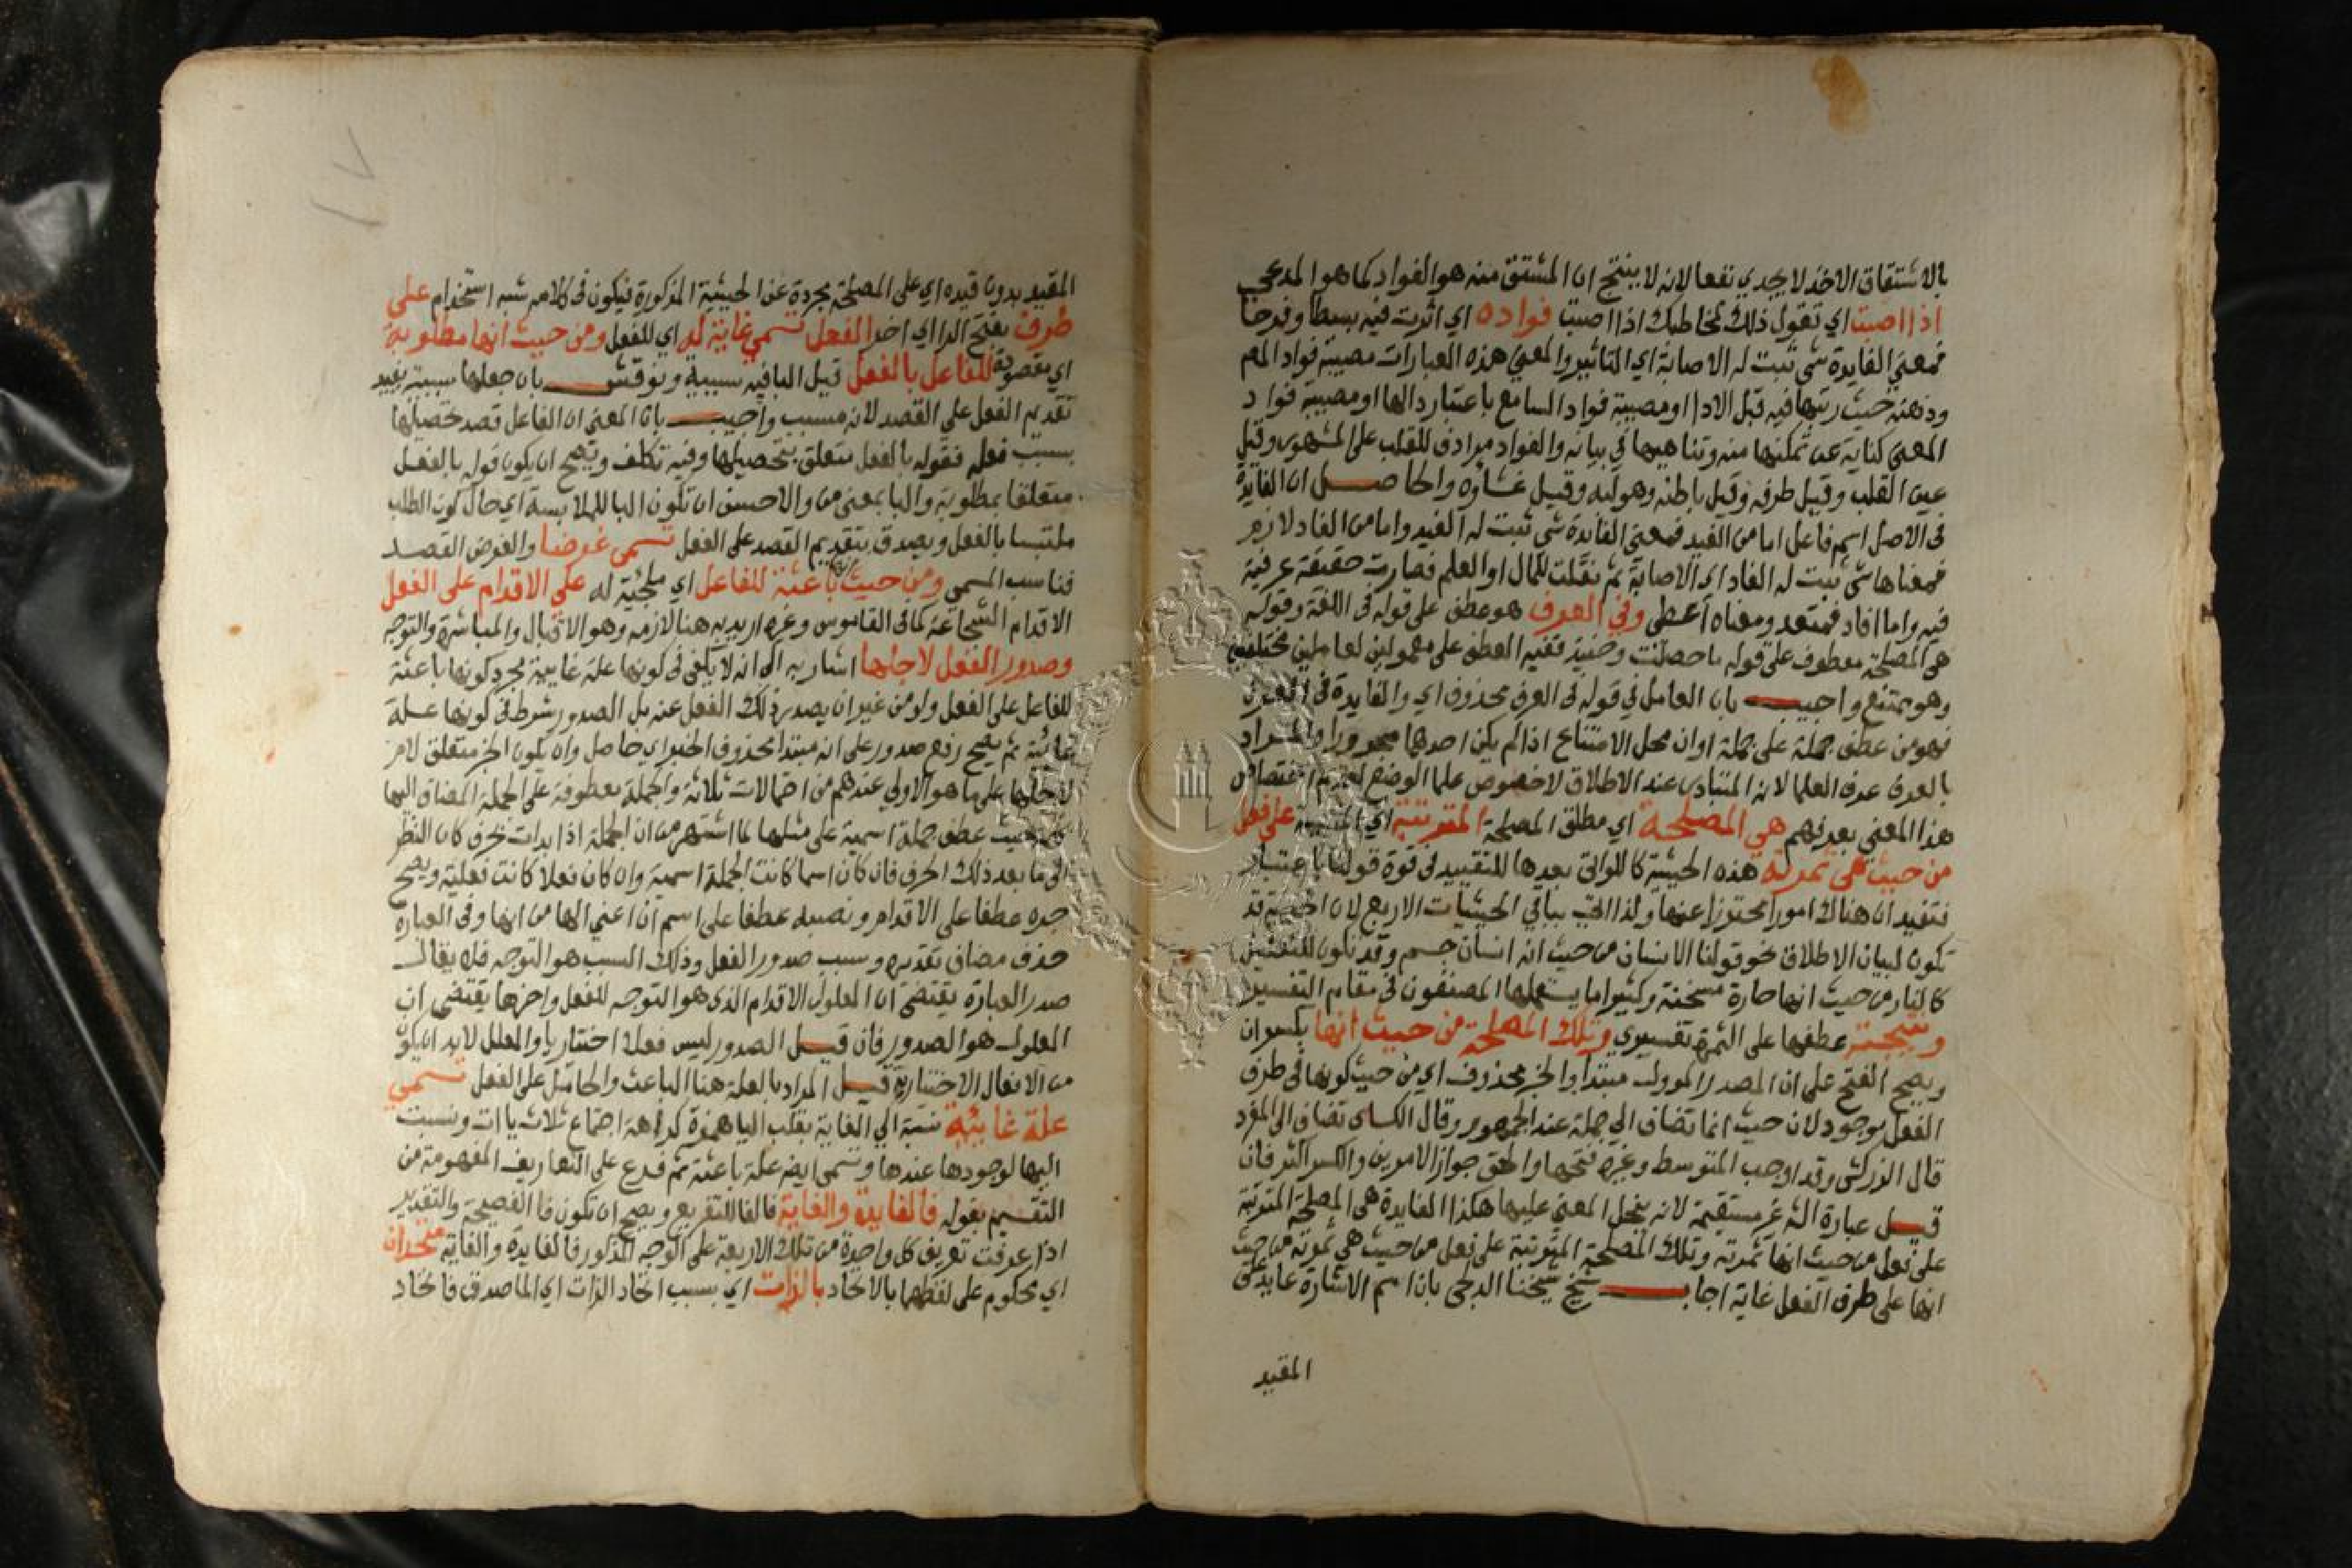 بالاشتقاق الاخذ لا يجدي نفعا لانه لا ينتج ان المشتق منه هو الفواد كما هو المدعي
اذا اصبت اي تقول ذلك لمخاطبك اذا اصبت فواده اي اثرت فيه بسطا وفرحا
فمعني الفايدة شي ثبت له الاصابة اي التاثير والمعني هذه العبارات مصيبة فواد
وذهنه حيث رتبها فيه قبل الادا او مصيبة فواد السامع باعتبار دالها او مصيبة فواد
المعني كناية عن تمكنها منه وتناهيها في بيانه والفواد مرادف للقلب علي المشهور وقيل
عين القلب وقيل طرفه وقيل باطنه وهو لبه وقيل غشاوه والحاصل ان الفايدة
في الاصل اسم فاعل اما من الفيد فمعني الفايدة شي ثبت له الفيد واما من الفاد لازم
فمعناها شي ثبت له الفاد اي الاصابة ثم نقلت للمال او العلم فصارت حقيقة عرفية
فيه واما افاد فمتعد ومعناه اعطي وفي العرف هو عطف علي قوله في اللغة وقوله
هي المصلحة معطوف علي قوله ما حصلت وحينيذ ففيه العطف علي معمولين لعاملين مختلفين
وهو ممتنع واجيب بان العامل في قوله في العرف محذوف اي والفايدة في العرف
فهو من عطف جملة علي جملة او ان محل الامتناع اذا لم يكن احدهما مجرورا والمراد
بالعرف عرف العلما لانه المتبادر عند الاطلاق لا خصوص علما الوضع لعدم اختصاص
هذا المعني بعرفهم هي المصلحة اي مطلق المصلحة المترتبة اي علي فعل
من حيث هي ثمرته هذه الحيثية كاللواتي بعدها للتقييد في قوة قولنا باعتبار
فتفيد ان هناك امورا محترزا عنها ولذا اتي بباقي الحيثيات الاربع لان الحيثية قد
تكون لبيان الاطلاق نحو قولنا الانسان من حيث انه انسان جسم وقد تكون للتعليل
كالنار من حيث انها حارة مسخنة وكثيرا ما يستعملها المصنفون في مقام التفسير
ونتيجته عطفها علي الثمرة تفسيري وتلك المصلحة من حيث انها بكسر ان
ويصح الفتح علي ان المصدر الموول مبتدا والخبر محذوف اي من حيث كونها في طرف
الفعل موجود لان حيث انما تضاف الي جملة عند الجمهور وقال الكساى تضاف الي المفرد
قال الزركشي وقد اوجب المتوسط وغيره فتحها والحق جواز الامرين والكسر اكثر فان
قيل عبارة الش غير مستقيمة لانه ينحل المعني عليها هكذا الفايدة هي المصلحة المترتبة
علي فعل من حيث انها ثمرته وتلك المصلحة المترتبة علي فعل من حيث هي ثمرته من حيث
انها علي طرف الفعل غاية اجاب شيخ شيخنا الدلجي بان اسم الاشارة عايد علي
المقيد
المقيد بدون قيده اي علي المصلحة مجردة عن الحيثية المذكورة فيكون في كلامه شبه استخدام علي
طرف بفتح الرا اي اخر الفعل تسمي غاية له اي للفعل ومن حيث انها مطلوبة
اي مقصودة للفاعل بالفعل قيل البا فيه سببية ونوقش بان جعلها سببية يفيد
تقديم الفعل علي القصد لانه مسبب واجيب بان المعني ان الفاعل قصد تحصيلها
بسبب فعله فقوله بالفعل متعلق بتحصيلها وفيه تكلف ويصح ان يكون قوله بالفعل
متعلقا بمطلوبة والبا بمعني من والاحسن ان تكون البا للملابسة اي حال كون الطلب
ملتبسا بالفعل ويصدق بتقديم القصد علي الفعل تسمي غرضا والغرض القصد
فناسب المسمي ومن حيث انها باعثة للفاعل اي ملجئة له علي الاقدام علي الفعل
الاقدام الشجاعة كما في القاموس وغيره اريد به هنا لازمه وهو الاقبال والمباشرة والتوجه
وصدور الفعل لاجلها اشار به الي انه لا يكفي في كونها علة غايية مجرد كونها باعثة
للفاعل علي الفعل ولو من غير ان يصدر ذلك الفعل عنه بل الصدور شرط في كونها علة
غائية ثم يصح رفع صدور علي انه مبتدا محذوف الخبر اي حاصل وان يكون الخبر متعلق لام
لاجلها علي ما هو الاولي عندهم من احتمالات ثلاثة والجملة معطوفة علي الجملة المضاف اليها
حيث عطف جملة اسمية علي مثلها لما اشتهر من ان الجملة اذا بدات بحرف كان النظر
الي ما بعد ذلك الحرف فان كان اسما كانت الجملة اسمية وان كان فعلا كانت فعلية ويصح
جره عطفا علي الاقدام ونصبه عطفا علي اسم ان اعني الها من انها وفي العبارة
حذف مضاف تقديره وسبب صدور الفعل وذلك السبب هو التوجه فلا يقال
صدر العبارة يقتضي ان المعلول الاقدام الذي هو التوجه للفعل واخرها يقتضي ان
المعلول هو الصدور فان قيل الصدور ليس فعلا اختياريا والمعلل لا بد ان يكون
من الافعال الاختيارية قيل المراد بالعلة هنا الباعث والحامل علي الفعل تسمي
علة غائية نسبة الي الغاية بقلب اليا همزة كراهة اجتماع ثلاث ياات ونسبت
اليها لوجودها عندها وتسمي ايضه علة باعثة ثم فرع علي التعاريف المفهومة من
التقسيم بقوله فالفايدة والغاية فالفا للتفريع ويصح ان تكون فا الفصيحة والتقدير
اذا عرفت تعريف كل واحدة من تلك الاربعة علي الوجه المذكور فالفايدة والغاية متحدان
اي محكوم علي لفظهما بالاتحاد بالذات اي بسبب اتحاد الذات اي الماصدق فاتحاد